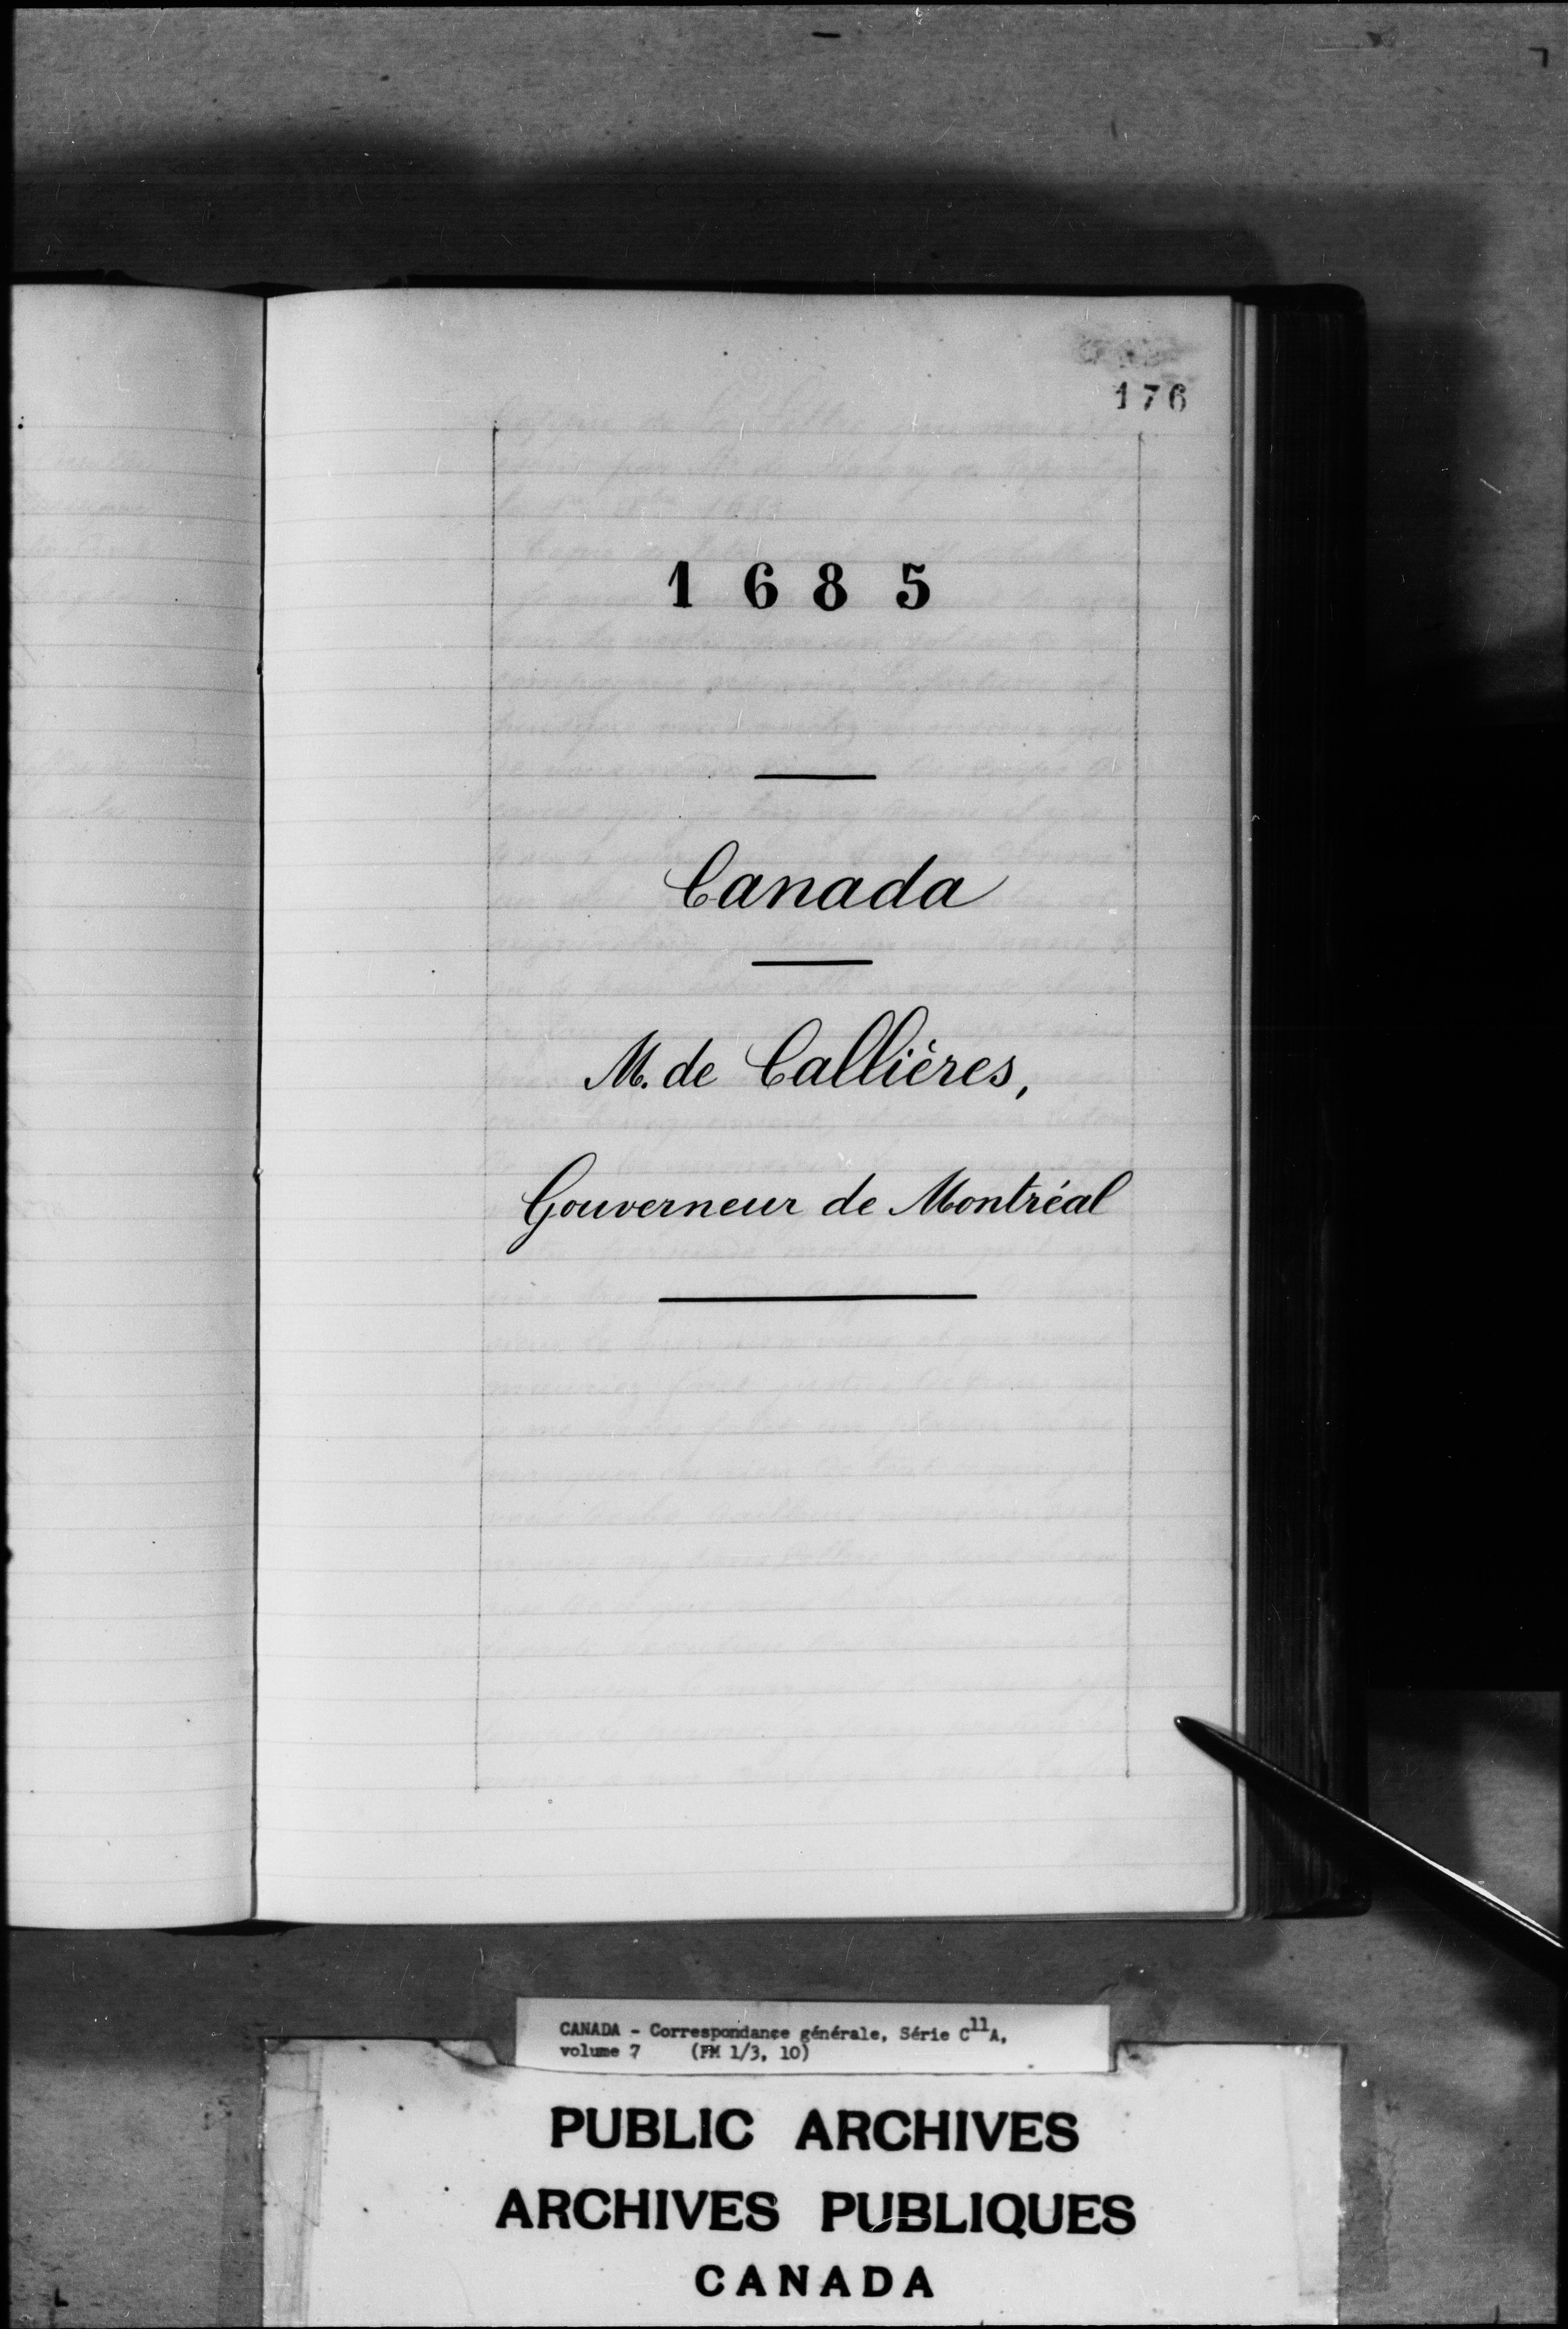 176
1 6 8 5
Canada
M. de Callières,
Gouverneur de Montréal
CANADA - Correspondance générale, Série C11A,
volume 7 (FM 1/3, 10)
PUBLIC ARCHIVES
ARCHIVES PUBLIQUES
CANADA